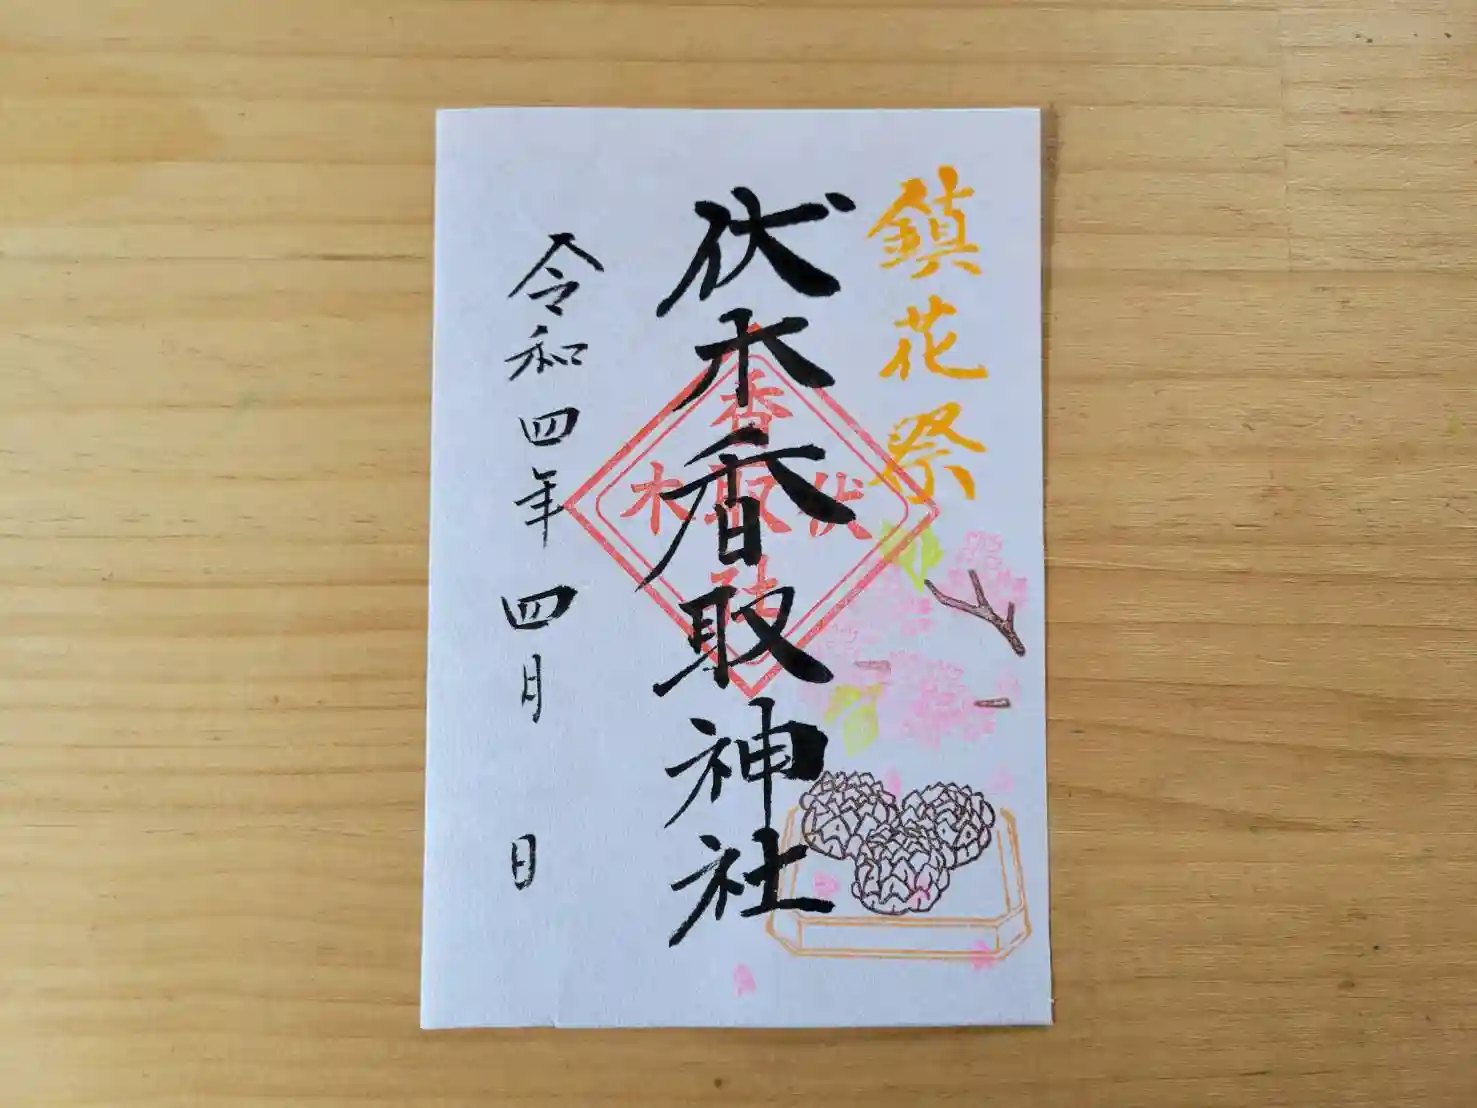 鎮花祭
伏木香取神社
香取社
伏木
令和四年四月 日